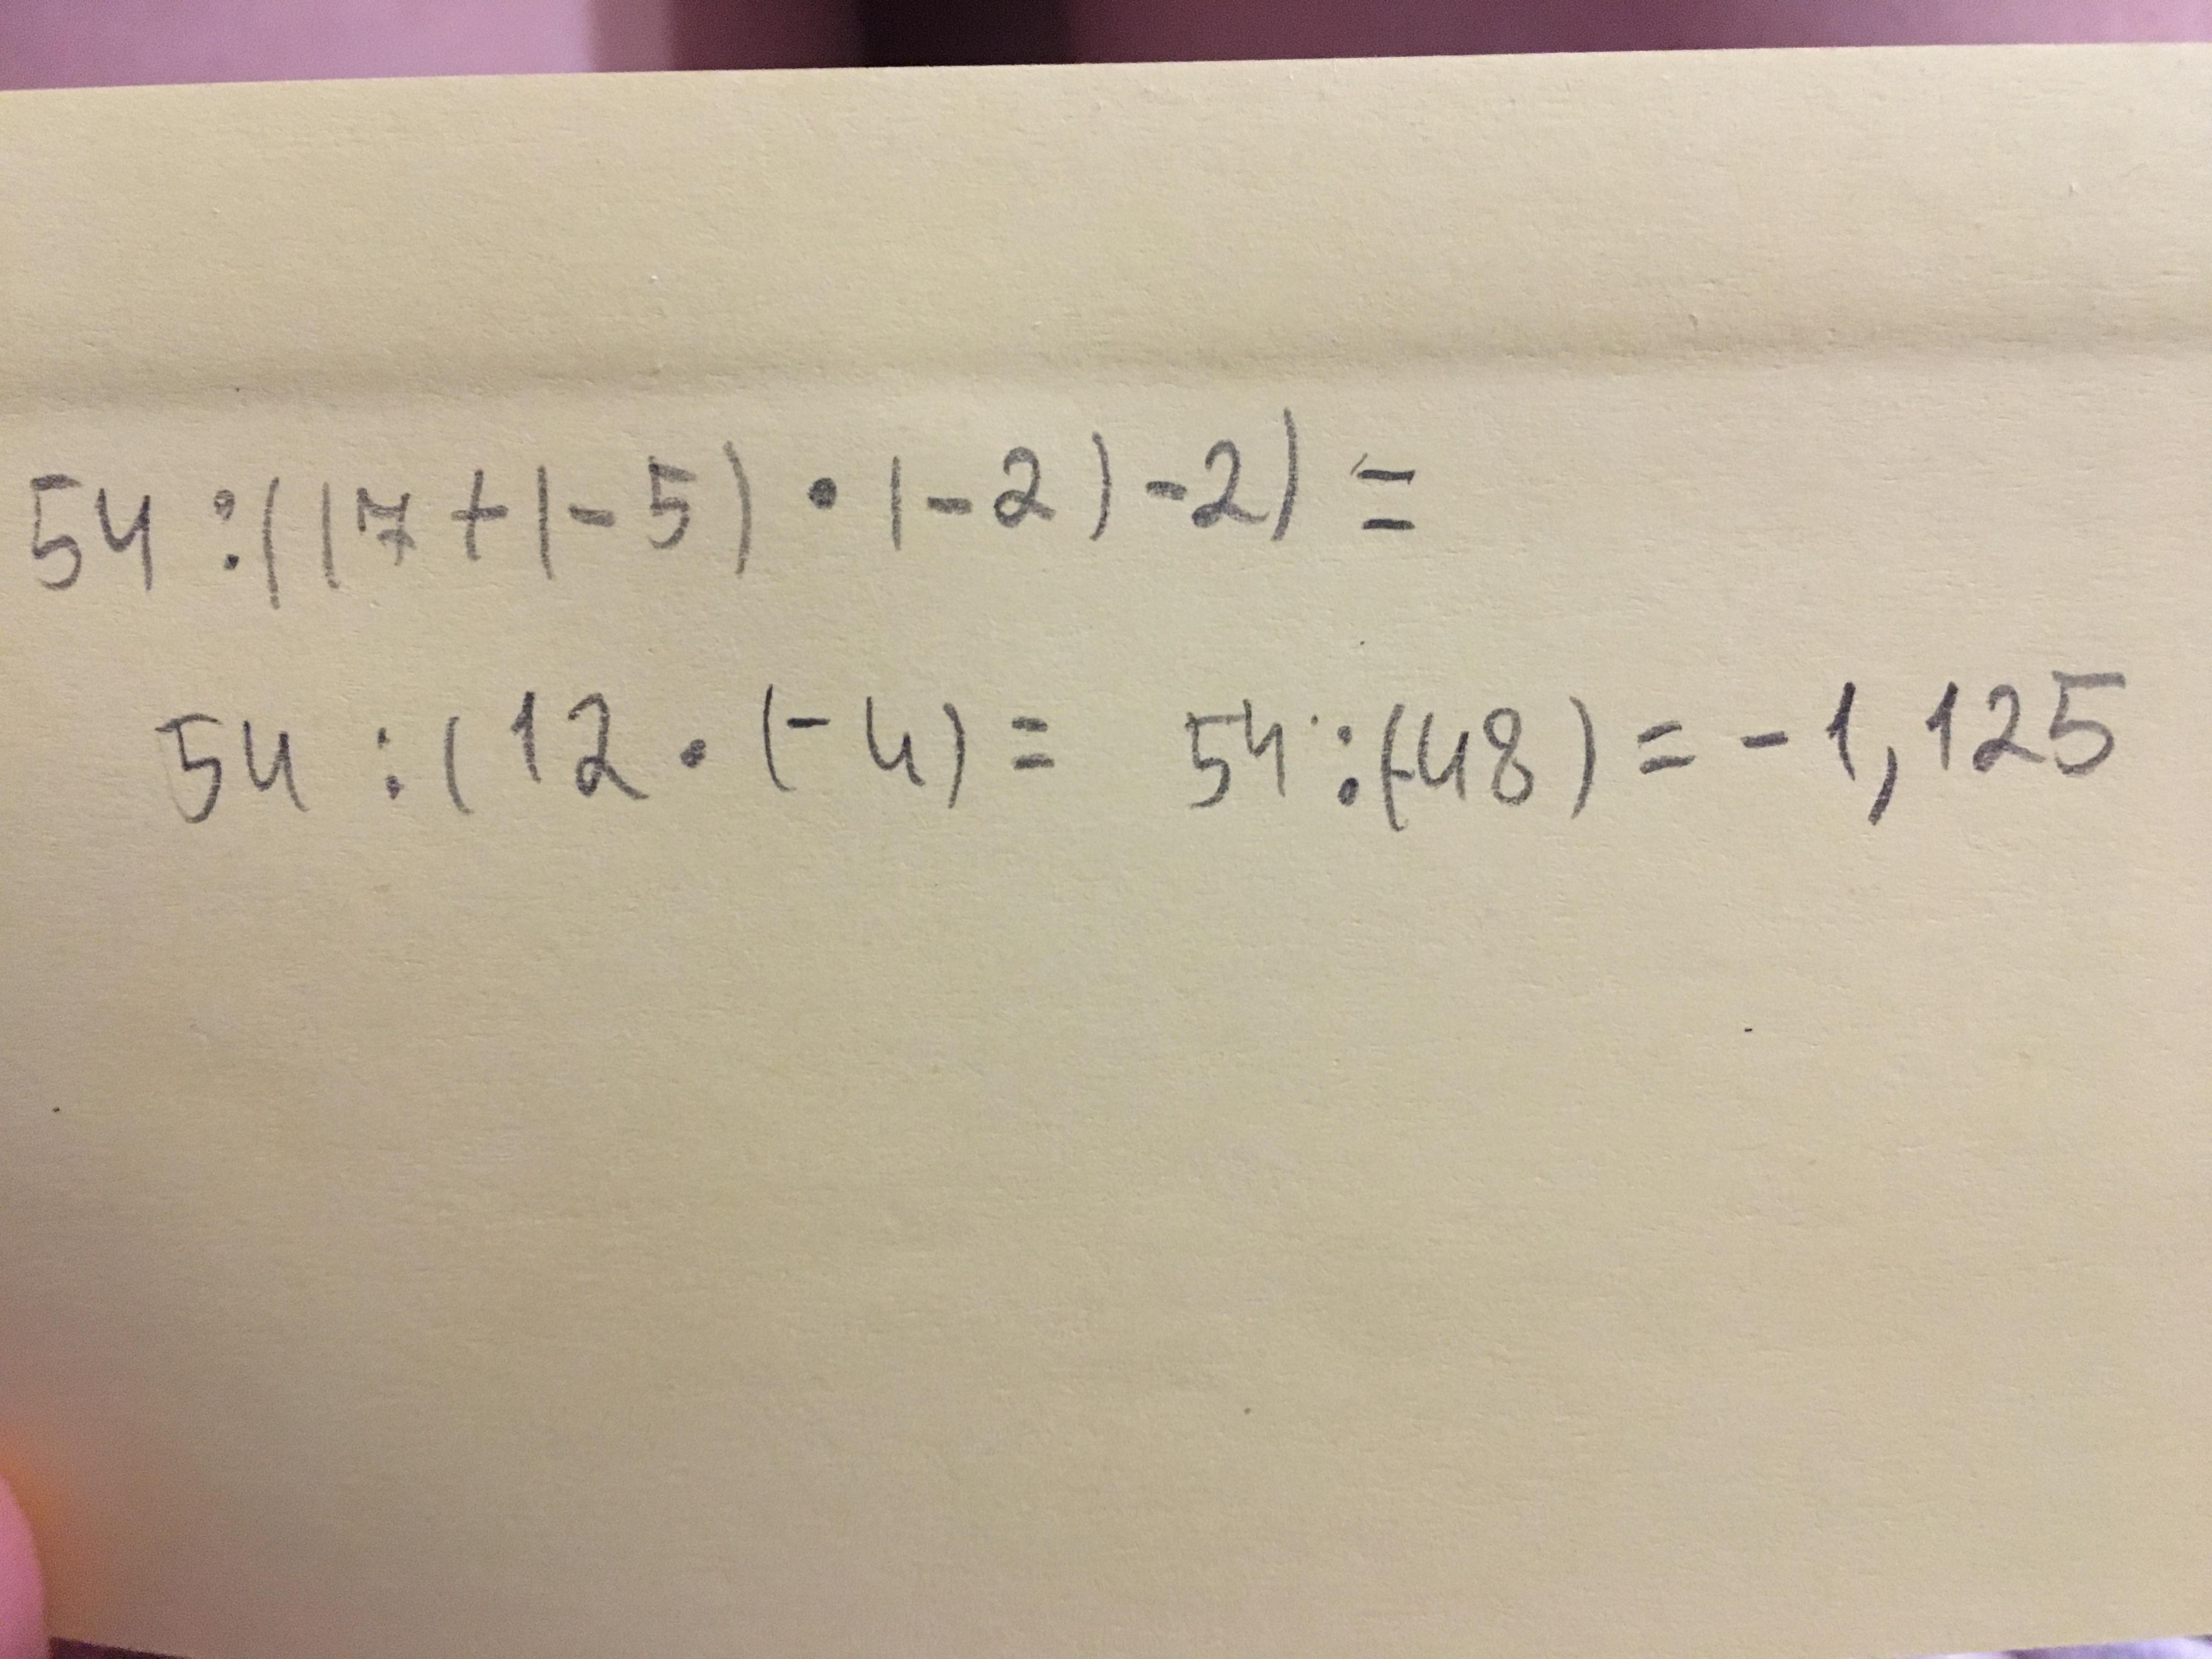 54 :((7+(-5) • (-2)-2) =
54 : (12 • (-4) = 54 :(-48) = -1,125